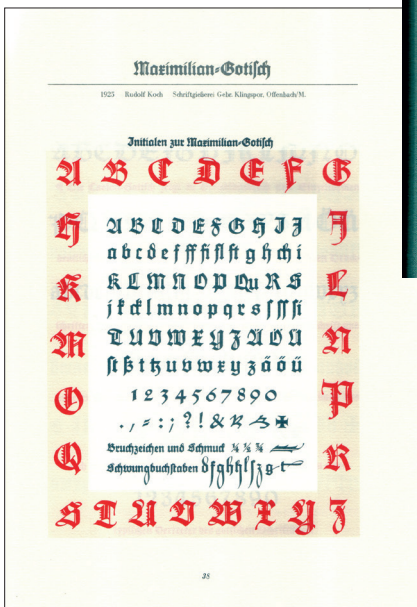 Maximilian=Gotiſch
1925 Rudolf Koch Schriftgießerei Gebr. Klingspor, Offenbach/M.
Initialen zur Maximilian=Gotiſch
A B C D E F G
A B C D E F G H I J
a b c d e f ff fi fl ft g h ch i
K L M N O P Qu R S
j k ck l m n o p q r s ſ ſſ ſi
T U V W X Y Z Ä Ö Ü
ſt ß t tz u v w x y z ä ö ü
1 2 3 4 5 6 7 8 9 0
. , = : ; ? ! &
Bruchzeichen und Schmuck
Schwungbuchſtaben
H J
K L
M N
O P
Q R
S T U V W X Y Z